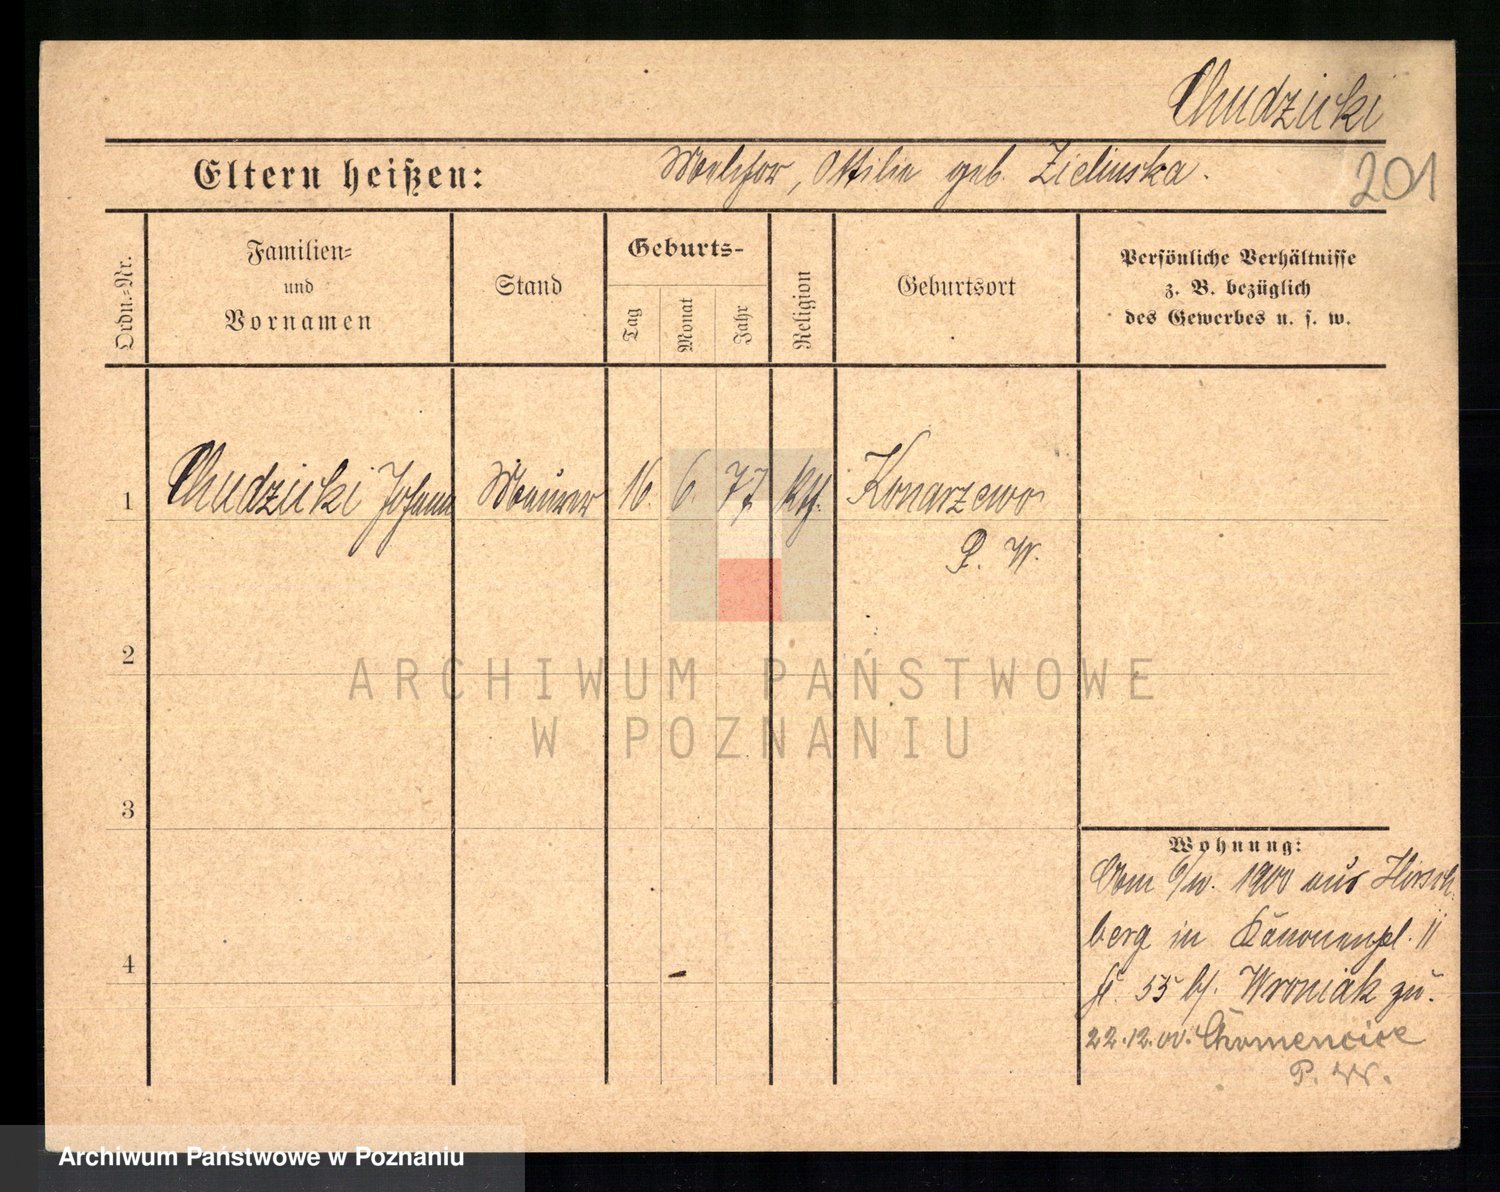 Chudzicki
Eltern heißen: Melchor, Ottilie geb. Zielinska.
201
Ordn.-Nr.
Familien-
und
Vornamen
Stand
Geburts-
Tag
Monat
Jahr
Religion
Geburtsort
Persönliche Verhältnisse
z. B. bezüglich
des Gewerbes u. s. w.
1 Chudzicki Johann Maurer 16. 6. 77 kth. Konarzewo
P. W.
2
ARCHIWUM PAŃSTWOWE
W POZNANIU
3
Wohnung:
Am 6/11. 1900 aus Hirsch-
berg in Kanonenpl. 11
55 b/. Wroniak zu.
4
22.12.00. Chomencice
P. W.
Archiwum Państwowe w Poznaniu